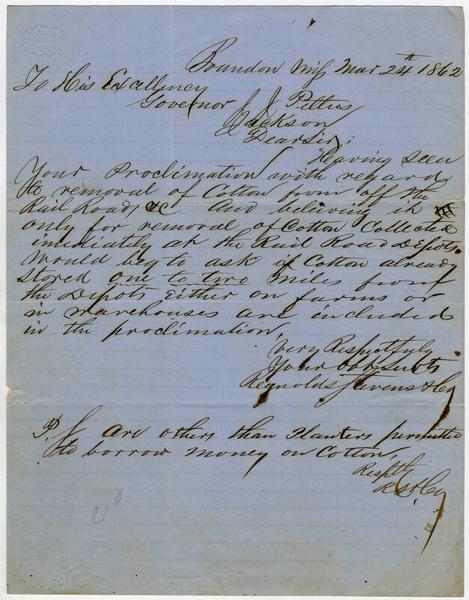 Brandon Miss Mar 24th 1862
To His Excellency
Governor J. J. Pettus
Jackson
Dear Sir;
Having Seen
Your Proclimation with regard
to removal of Cotton from off the
Rail Road, &C And beliving it
only for removal of Cotton Collected
imediately at the Rail Road Depots
would beg to ask if Cotton already
stored one to two miles from
the Depots Either on farms or
in warehouses are included
in the proclimation,
Very Respectfuly
Your obt Svts
Reynolds Stevens & Co
P. S. are others than Planters permitted
to borrow money on Cotton,
Resptly
R S & Co